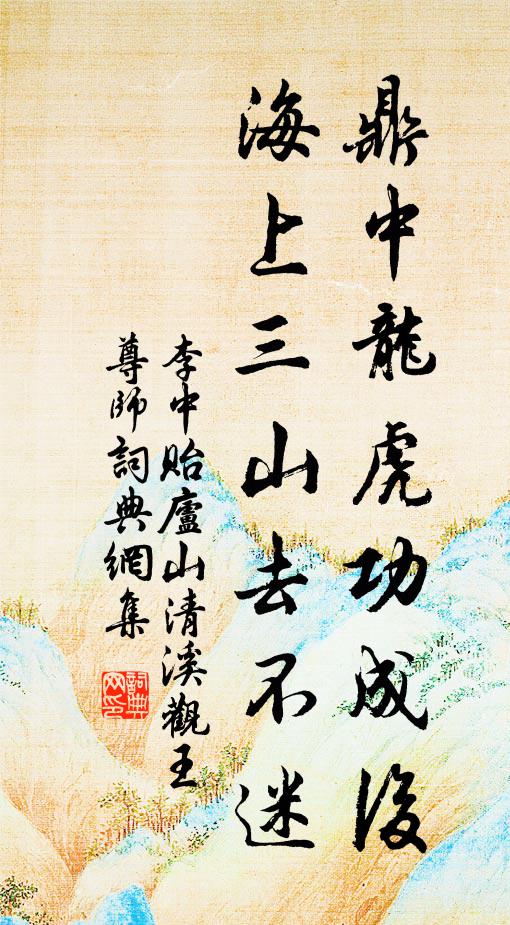 鼎中龍虎功成後
海上三山去不迷
李中貽廬山清溪觀王
尊師詞典網集
詞典網印